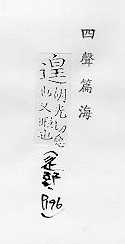 四聲篇海
遑
胡光切急
也又暇也
(辵部)